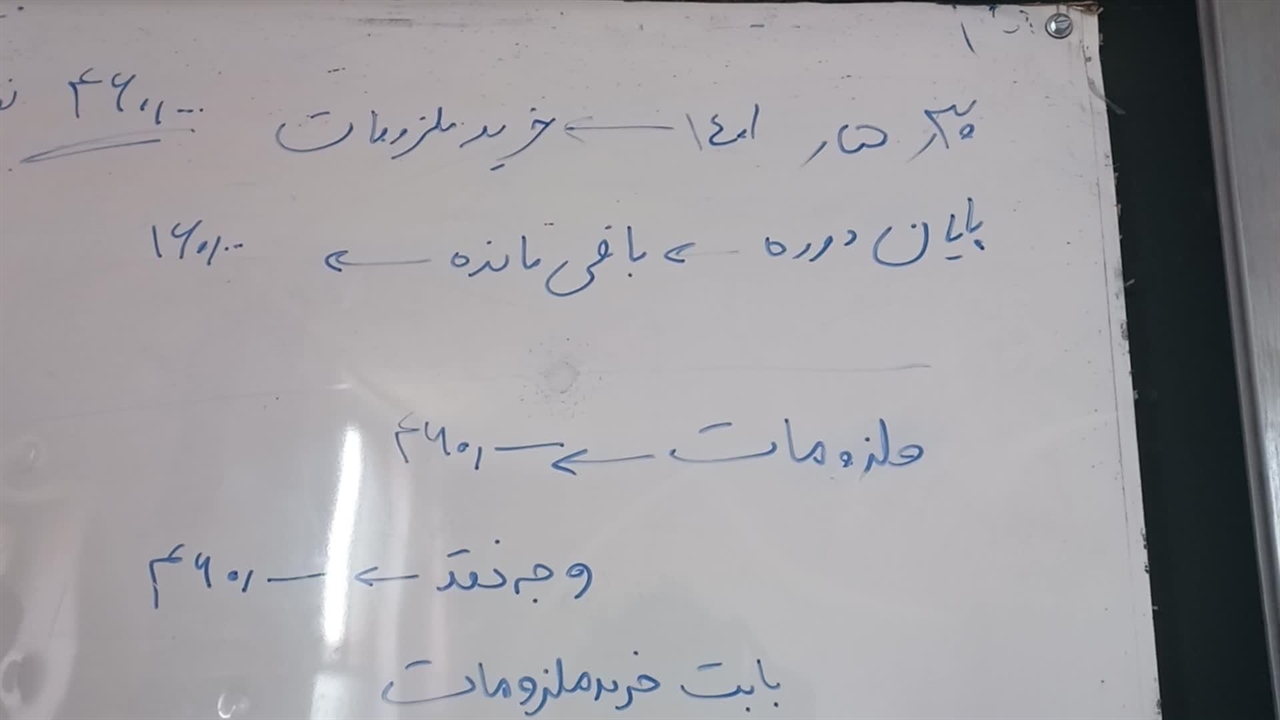 خرید ملزومات ← ۴۶۰,۰۰۰
پایان دوره ← باقی مانده ← ۱۶۰,۰۰۰
ملزومات ← ۴۶۰,—
وجه نقد ← ۴۶۰,—
بابت خرید ملزومات